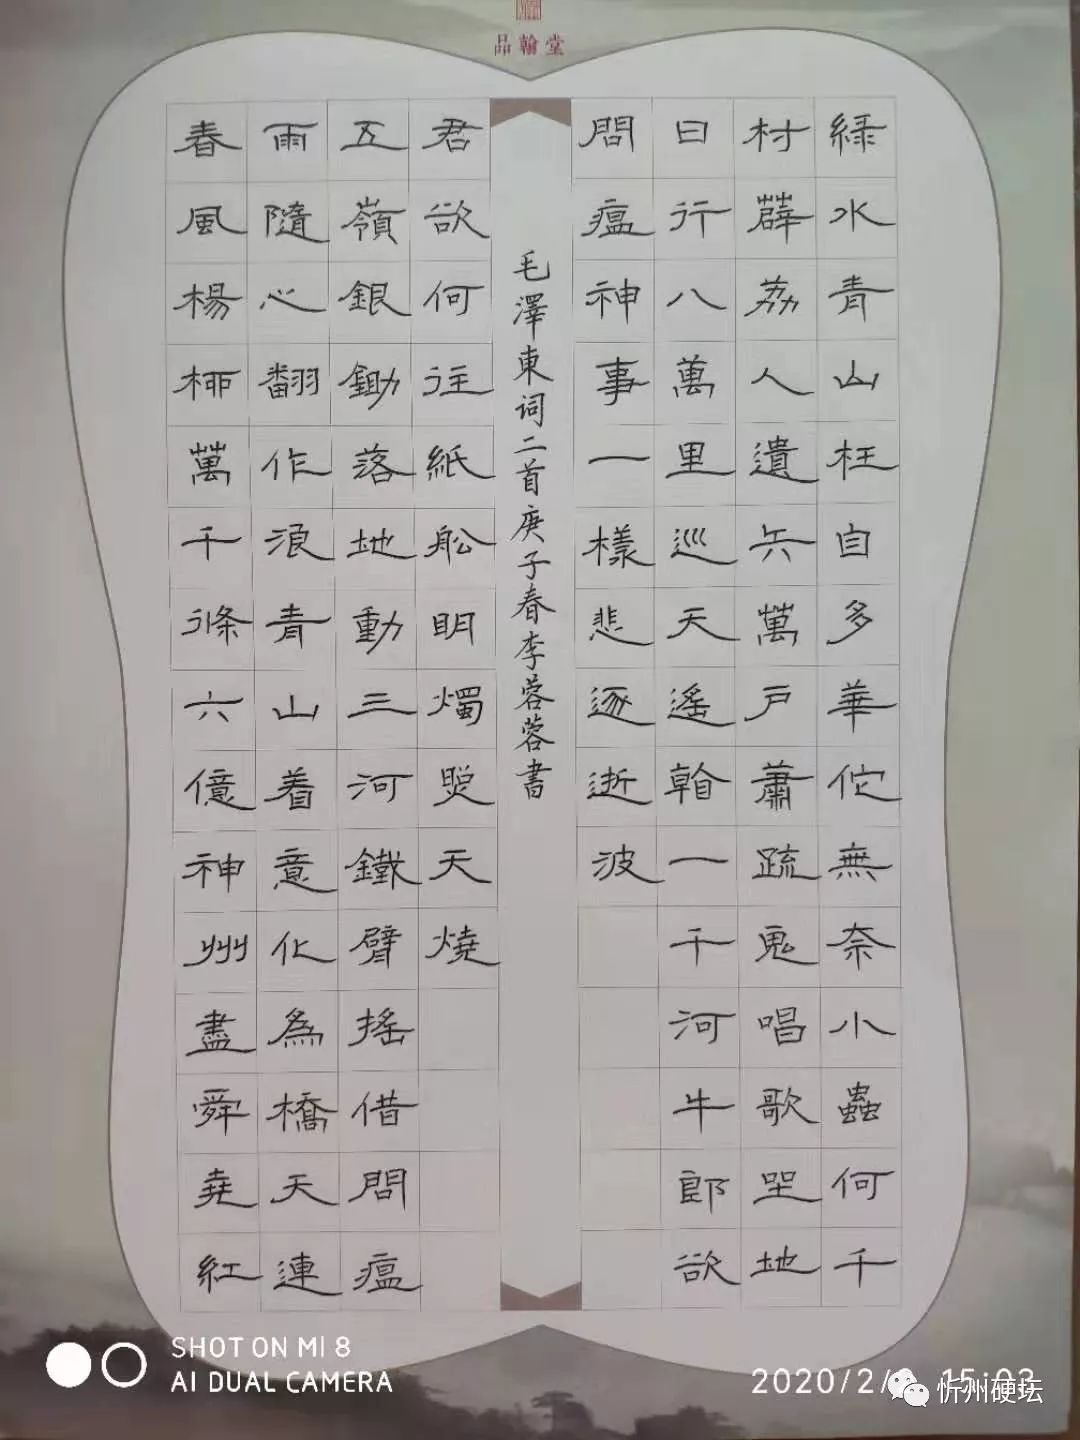 品翰堂
綠水青山枉自多華佗無奈小蟲何千
村薜荔人遺矢萬戶蕭疏鬼唱歌坐地
日行八萬里巡天遙看一千河牛郎欲
問瘟神事一樣悲逐逝波
春風楊柳萬千條六億神州盡舜堯紅
雨隨心翻作浪青山着意化為橋天連
五嶺銀鋤落地動三河鐵臂搖借問瘟
君欲何往紙船明燭照天燒
毛澤東词二首庚子春李蓉蓉書
SHOT ON MI 8
AI DUAL CAMERA
2020/2/ 15:03
忻州硬坛